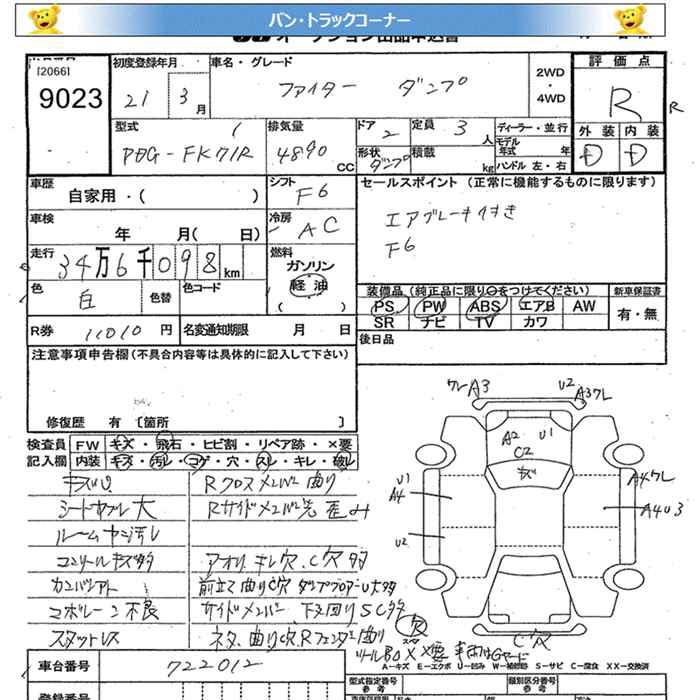 バン・トラックコーナー
オークション出品申込書
[2066]
9023
初度登録年月
21 3月
車名・グレード
ファイター ダンプ
2WD
・
4WD
評価点
R R
外装 内装
D D
型式
PDG-FK71R
排気量
4890 CC
ドア 2
定員 3人
形状 ダンプ
積載 kg
ディーラー・並行
モデル年式 年
ハンドル 左・右
車歴
自家用・( )
シフト
F6
車検
年 月( 日)
冷房
AC
走行
34万6千098km
燃料
ガソリン
軽油
( )
色
白
色替
色コード
R券 11010円
名変通知期限 月 日
セールスポイント (正常に機能するものに限ります)
エアブレーキ付き
F6
装備品 (純正品に限り○をつけてください)
PS PW ABS エアB AW
SR ナビ TV カワ
新車保証書
有・無
後日品
注意事項申告欄(不具合内容等は具体的に記入して下さい)
修復歴 有 [箇所 ]
検査員
記入欄
FW キズ・飛石・ヒビ割・リペア跡・×要
内装 キズ・汚レ・コゲ・穴・スレ・キレ・破レ
シート 大
ルームヤニ汚レ
コンソールキズ多
スタットレス
Rクロスメンバー曲り
Rサイドメンバー先歪み
アオリ キレ穴、C穴多
前立て曲りC穴
サイドメンバー 下廻りSC多
Rフェンダー曲り
ワレA3 U2 A3ワレ
A2 U1
C2
キズ
U1
A4
U2
A4ワレ
A4U3
穴
C穴
A…キズ E…エクボ U…凹み W…補修跡 S…サビ C…腐食 XX…交換済
車台番号 722012
登録番号
型式指定番号
参考
類別区分番号
参考